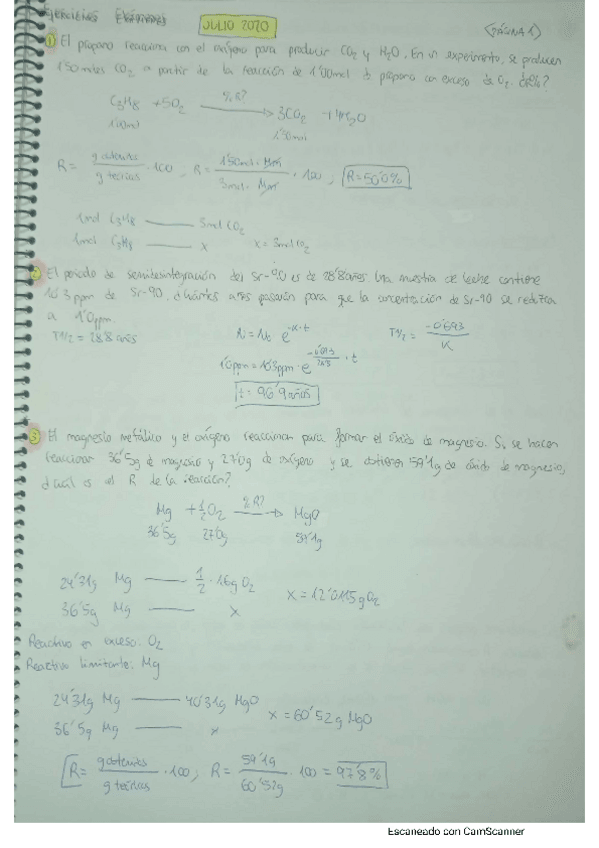 Ejercicios Exámenes
JULIO 2020
(PÁGINA 1)
1) El propano reacciona con el oxígeno para producir CO2 y H2O. En un experimento, se producen
1'50 moles CO2 a partir de la reacción de 1'00 mol de propano con exceso de O2. ¿R%?
C3H8 + 5O2 → 3CO2 + 4H2O
%R?
1'00mol 1'50mol
R = g obtenidos / g teóricos · 100 ; R = 1'50mol · Mm / 3mol · Mm · 100 ; R=50'0%
1mol C3H8 —— 3mol CO2
1mol C3H8 —— x x = 3mol CO2
2) El periodo de semidesintegración del Sr-90 es de 28'8 años. Una muestra de leche contiene
10'3 ppm de Sr-90. ¿Cuántos años pasarán para que la concentración de Sr-90 se reduzca
a 1'0 ppm.
T1/2 = 28'8 años N = N0 e^-K·t T1/2 = -0'693 / K
1'0ppm = 10'3ppm · e^-0'693/28'8 · t
t = 96'9 años
3) El magnesio metálico y el oxígeno reaccionan para formar el óxido de magnesio. Si se hacen
reaccionar 36'5g de magnesio y 27'0g de oxígeno y se obtienen 59'1g de óxido de magnesio,
¿cuál es el R de la reacción?
Mg + 1/2 O2 → MgO
%R?
36'5g 27'0g 59'1g
24'31g Mg —— 1/2 · 16g O2
36'5g Mg —— x x = 12'0115g O2
Reactivo en exceso: O2
Reactivo limitante: Mg
24'31g Mg —— 40'31g MgO
36'5g Mg —— x x = 60'52g MgO
R = g obtenidos / g teóricos · 100 ; R = 59'1g / 60'52g · 100 = 97'8%
Escaneado con CamScanner